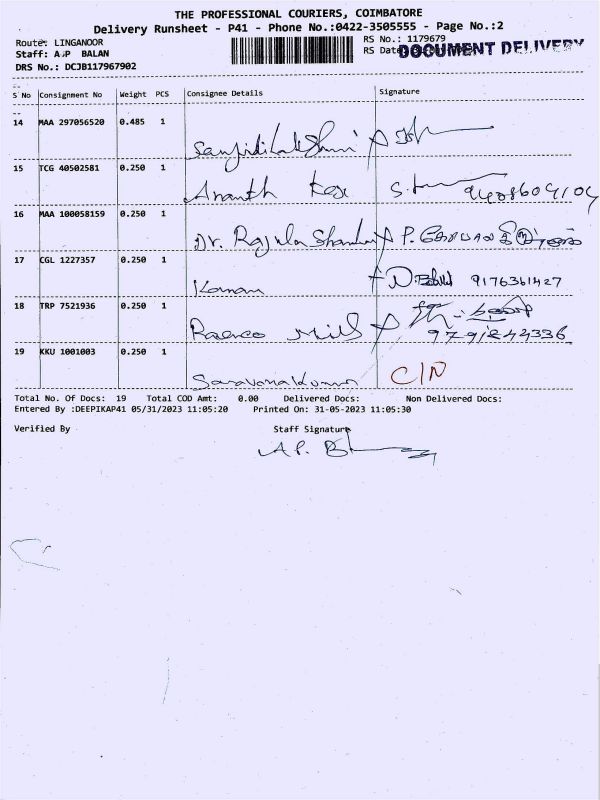 THE PROFESSIONAL COURIERS, COIMBATORE
Delivery Runsheet - P41 - Phone No.:0422-3505555 - Page No.:2
Route: LINGANOOR
RS No.: 1179679
Staff: A.P BALAN
RS Date
DOCUMENT DELIVERY
DRS No.: DCJB117967902
S No Consignment No Weight PCS Consignee Details Signature
14 MAA 297056520 0.485 1
15 TCG 40502581 0.250 1 Ananth
16 MAA 100058159 0.250 1 Dr. P.
17 CGL 1227357 0.250 1 9176361427
18 TRP 7521936 0.250 1 Mill
9791244336
19 KKU 1001003 0.250 1 Saravanakumar C/N
Total No. Of Docs: 19 Total COD Amt: 0.00 Delivered Docs: Non Delivered Docs:
Entered By :DEEPIKAP41 05/31/2023 11:05:20 Printed On: 31-05-2023 11:05:30
Verified By Staff Signature
A.P.